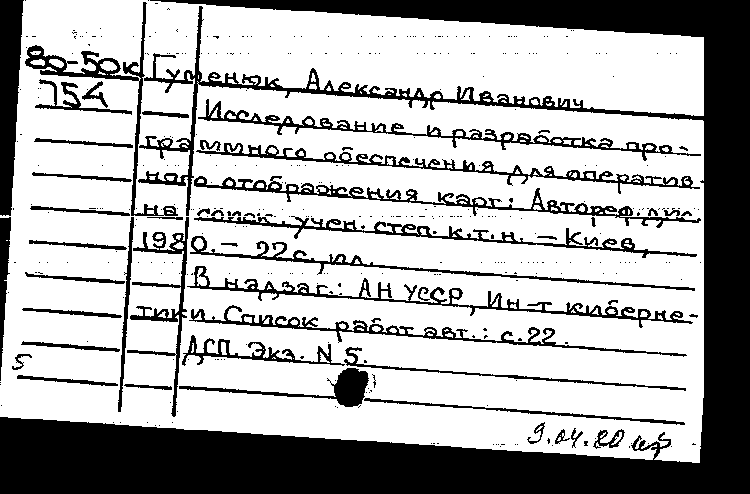 80-50к Гуменюк, Александр Иванович.
754
Исследование и разработка про-
граммного обеспечения для оператив-
ного отображения карт: Автореф. дис.
на соиск. учен. степ. к.т.н. – Киев,
1980. – 22 с., ил.
В надзаг.: АН УССР, Ин-т киберне-
тики. Список работ авт.: с. 22.
ДСП. Экз. N 5.
5
9.04.80